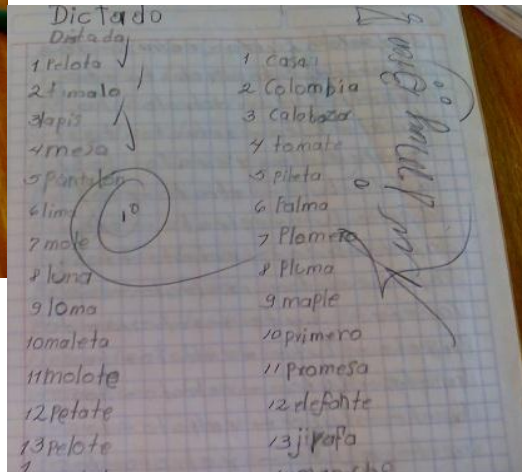 Dictado
Dictada
1 Pelota
2 timalo
3 lapis
4 mesa
5 pantalón
6 lima
7 mole
8 luna
9 loma
10 maleta
11 molote
12 Petate
13 Pelote
10
1 casa
2 Colombia
3 Calabaza
4 tomate
5 Pileta
6 Palma
7 Plomero
8 Pluma
9 maple
10 primero
11 promesa
12 elefante
13 jirafa
muy Bien